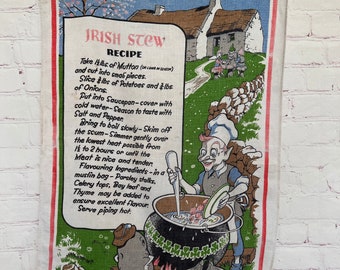 IRISH STEW
RECIPE
Take 1½ lbs. of Mutton
and cut into small pieces.
Slice ½ lbs of Potatoes and ½ lbs
of Onions.
Put into Saucepan - cover with
cold water - Season to taste with
Salt and Pepper.
Bring to boil slowly - Skim off
the scum - Simmer gently over
the lowest heat possible from
1½ to 2 hours or until the
Meat is nice and tender.
Flavouring Ingredients - in a
muslin bag - Parsley stalks,
Celery tops, Bay leaf and
Thyme may be added to
ensure excellent flavour.
Serve piping hot.